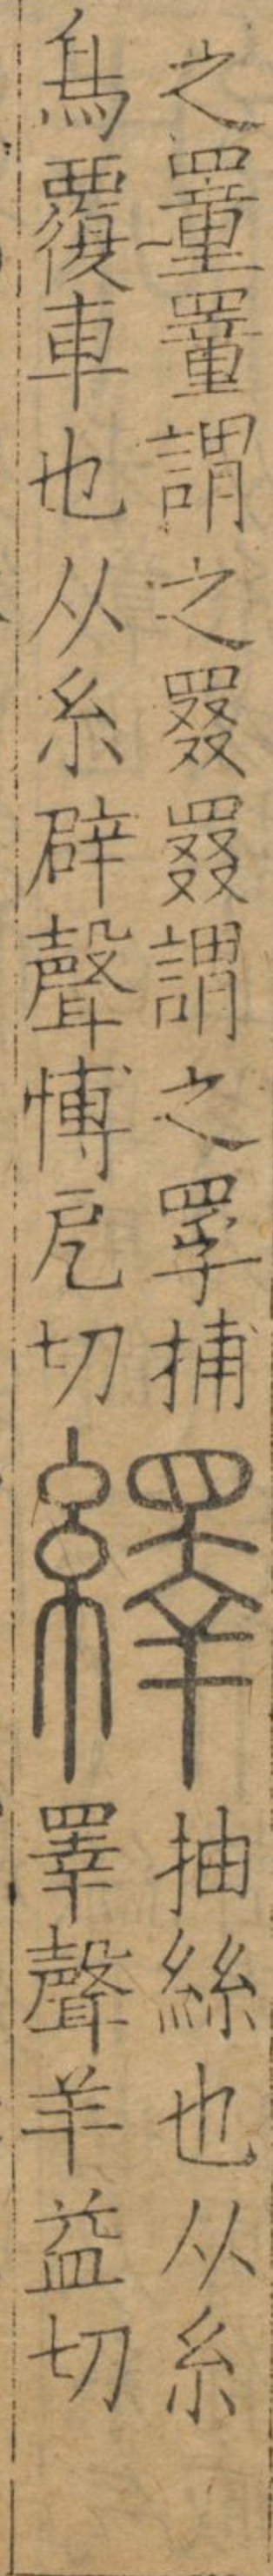 之罿罿謂之罬罬謂之罦捕
鳥覆車也从糸辟聲愽厄切
繹
抽絲也从糸
睪聲羊益切